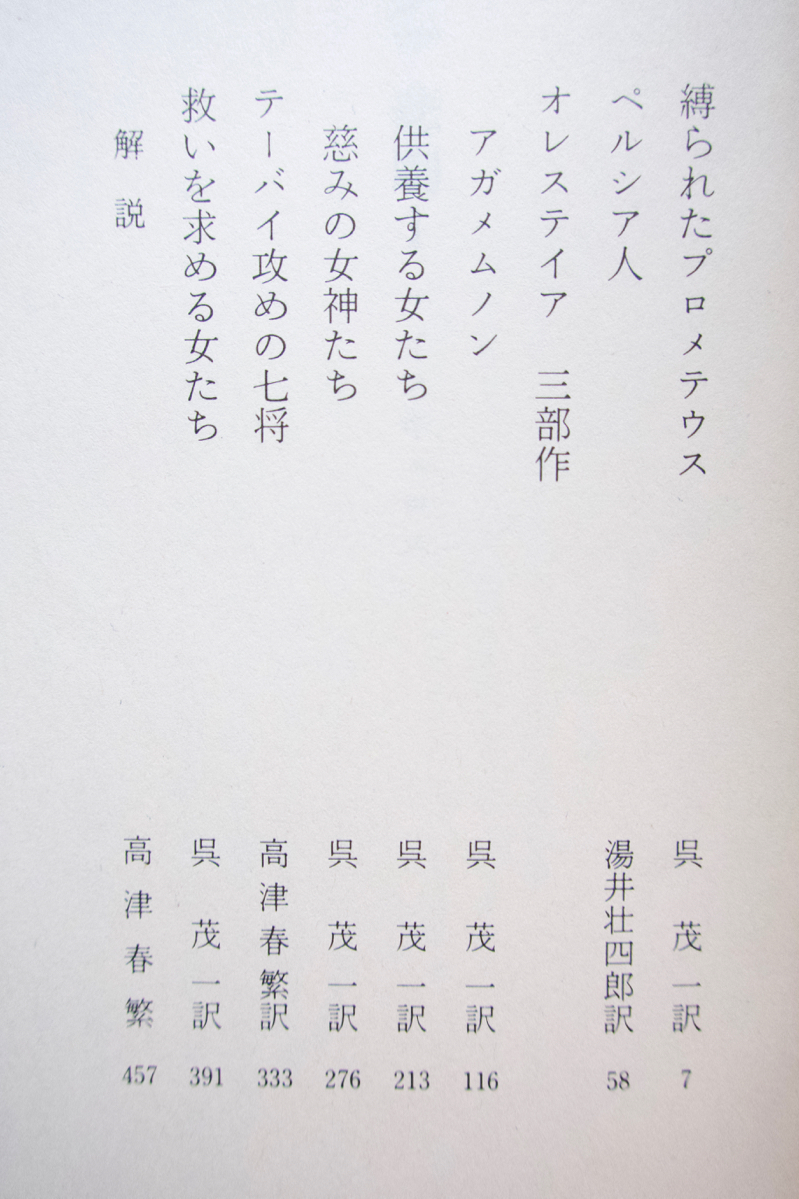 縛られたプロメテウス 呉 茂一訳 7
ペルシア人 湯井壮四郎訳 58
オレステイア 三部作
アガメムノン 呉 茂一訳 116
供養する女たち 呉 茂一訳 213
慈みの女神たち 呉 茂一訳 276
テーバイ攻めの七将 高津春繁訳 333
救いを求める女たち 呉 茂一訳 391
解説 高津春繁 457